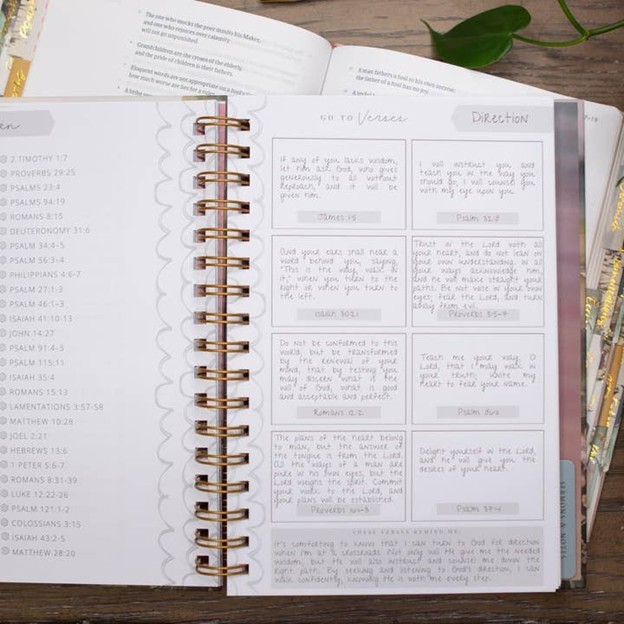 The one who mocks the poor insults his Maker,
and one who rejoices over calamity
will not go unpunished.
Grandchildren are the crown of the elderly,
and the pride of children is their fathers.
Eloquent words are not appropriate on a fool's
how much worse are lies for a ruler.
A man fathers a fool to his own sorrow;
the father of a fool has no joy.
2 TIMOTHY 1:7
PROVERBS 29:25
PSALMS 23:4
PSALMS 94:19
ROMANS 8:15
DEUTERONOMY 31:6
PSALM 34:4-5
PSALM 56:3-4
PHILIPPIANS 4:6-7
PSALM 27:1-3
PSALM 46:1-3
ISAIAH 41:10-13
JOHN 14:27
PSALM 91:4-5
PSALM 115:11
ISAIAH 35:4
ROMANS 15:13
LAMENTATIONS 3:57-58
MATTHEW 10:28
JOEL 2:21
HEBREWS 13:6
1 PETER 5:6-7
ROMANS 8:31-39
LUKE 12:22-26
PSALM 121:1-2
COLOSSIANS 3:15
ISAIAH 43:2-5
MATTHEW 28:20
GO TO Verses
Direction
If any of you lacks wisdom,
let him ask God, who gives
generously to all without
reproach, and it will be
given him.
James 1:5
I will instruct you and
teach you in the way you
should go; I will counsel you
with my eye upon you.
Psalm 32:8
And your ears shall hear a
word behind you, saying,
"This is the way, walk in
it," when you turn to the
right or when you turn to
the left.
Isaiah 30:21
Trust in the Lord with all
your heart, and do not lean on
your own understanding. In all
your ways acknowledge him,
and he will make straight your
paths. Be not wise in your own
eyes; fear the Lord, and turn
away from evil.
Proverbs 3:5-7
Do not be conformed to this
world, but be transformed
by the renewal of your
mind, that by testing you
may discern what is the
will of God, what is good
and acceptable and perfect.
Romans 12:2
Teach me your way, O
Lord, that I may walk in
your truth; unite my
heart to fear your name.
Psalm
The plans of the heart belong
to man, but the answer of
the tongue is from the Lord.
All the ways of a man are
pure in his own eyes, but the
Lord weighs the spirit. Commit
your work to the Lord, and
your plans will be established.
Proverbs 16:1-3
Delight yourself in the Lord,
and he will give you the
desires of your heart.
Psalm 37:4
THESE VERSES REMIND ME:
It's comforting to know that I can turn to God for direction
when I'm at a crossroads. Not only will He give me the needed
wisdom, but He will also instruct and counsel me down the
right path. By seeking and listening to God's direction, I can
walk confidently, knowing He is with me every step.
SERMONS & NOTES